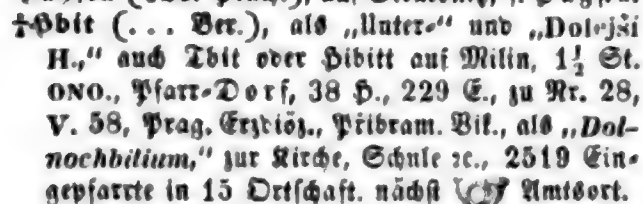 ‡Hbit (... Ber.), als „Unter-" und „Dolejši
H.," auch Tbit oder Hibitt auf Milin, 1½ St.
ONO., Pfarr-Dorf, 38 H., 229 E., zu Nr. 28,
V. 58, Prag. Erzdiöz., Přibram. Bik., als „Dol-
nochbitium," zur Kirche, Schule ꝛc., 2519 Ein-
gepfarrte in 15 Ortschaft. nächst Amtsort.